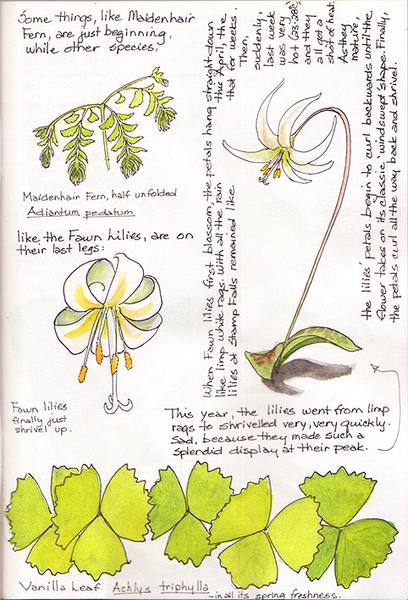 Some things, like Maidenhair
Fern, are just beginning,
while other species,
Maidenhair Fern, half unfolded
Adiantum pedatum
like the Fawn Lilies, are on
their last legs:
Fawn lilies
finally just
shrivel up.
When Fawn lilies first blossom, the petals hang straight down
like limp white rags. With all the rain this April, the
lilies at Stamp Falls remained like that for weeks.
Then,
suddenly,
last week
was very
hot (23-28°)
and they
all got a
shot of heat.
As they
mature,
the lilies' petals begin to curl backwards until the
flower takes on its classic, windswept shape. Finally,
the petals curl all the way back and shrivel.
This year, the lilies went from limp
rags to shrivelled very, very quickly.
Sad, because they made such a
splendid display at their peak.
Vanilla Leaf Achlys triphylla - in all its spring freshness.